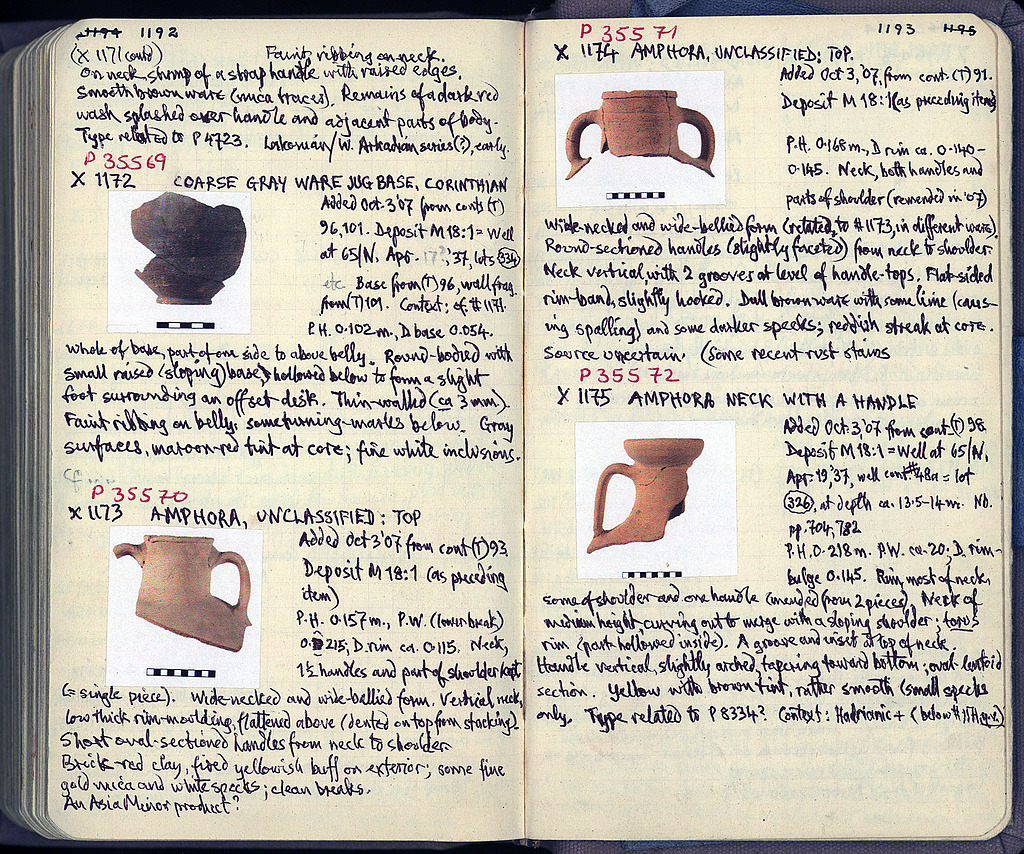 1194 1192
(X 1171 contd) Faint ribbing on neck.
On neck, stump of a strap handle with raised edges.
Smooth brown ware (mica traces). Remains of a dark red
wash splashed over handle and adjacent parts of body.
Type related to P 4723. Lakonian/W. Arkadian series(?), early.
P 35569
X 1172 COARSE GRAY WARE JUG BASE, CORINTHIAN
Added Oct. 3 '07 from conts (T)
96, 101. Deposit M 18:1 = Well
at 65/N, Apr. 17?, '37, lots 334
etc Base from (T) 96, wall frag.
from (T) 101. Context: cf. #1171.
P.H. 0.102 m., D base 0.054.
Whole of base, part of one side to above belly. Round-bodied with
small raised (sloping) base, hollowed below to form a slight
foot surrounding an offset disk. Thin-walled (ca 3 mm).
Faint ribbing on belly; some turning-marks below. Gray
surfaces, maroon-red tint at core; fine white inclusions.
cf ...
P 35570
X 1173 AMPHORA, UNCLASSIFIED: TOP
Added Oct 3 '07 from cont (T) 93.
Deposit M 18:1 (as preceding
item)
P.H. 0.157 m., P.W. (lower break)
0.215; D. rim ca. 0.115. Neck,
1½ handles and part of shoulder kept
(= single piece). Wide-necked and wide-bellied form. Vertical neck,
low thick rim-moulding, flattened above (dented on top from stacking).
Short oval-sectioned handles from neck to shoulder.
Brick-red clay, fired yellowish buff on exterior; some fine
gold mica and white specks; clean breaks.
An Asia Minor product?
1193 1195
P 35571
X 1174 AMPHORA, UNCLASSIFIED: TOP.
Added Oct 3, '07, from cont. (T) 91.
Deposit M 18:1 (as preceding item)
P.H. 0.168 m., D rim ca. 0.140-
0.145. Neck, both handles and
parts of shoulder (remended in '07)
Wide-necked and wide-bellied form (related to #1173, in different ware).
Round-sectioned handles (slightly faceted) from neck to shoulder.
Neck vertical with 2 grooves at level of handle-tops. Flat-sided
rim-band, slightly hooked. Dull brown ware with some lime (caus-
ing spalling) and some darker specks; reddish streak at core.
Source uncertain. (Some recent rust stains
P 35572
X 1175 AMPHORA NECK WITH A HANDLE
Added Oct. 3, '07 from cont. (T) 98.
Deposit M 18:1 = Well at 65/N,
Apr. 19, '37, well cont. #48a = lot
326, at depth ca. 13.5-14 m. NB.
pp. 704, 782
P.H. 0.218 m. P.W. ca. 20; D. rim-
bulge 0.145. Rim, most of neck,
some of shoulder and one handle (mended from 2 pieces). Neck of
medium height curving out to merge with a sloping shoulder; torus
rim (part-hollowed inside). A groove and inset at top of neck.
Handle vertical, slightly arched, tapering toward bottom; oval-lentoid
section. Yellow with brown tint, rather smooth (small specks
only. Type related to P 8334? Context: Hadrianic + (below #1174, q.v.)